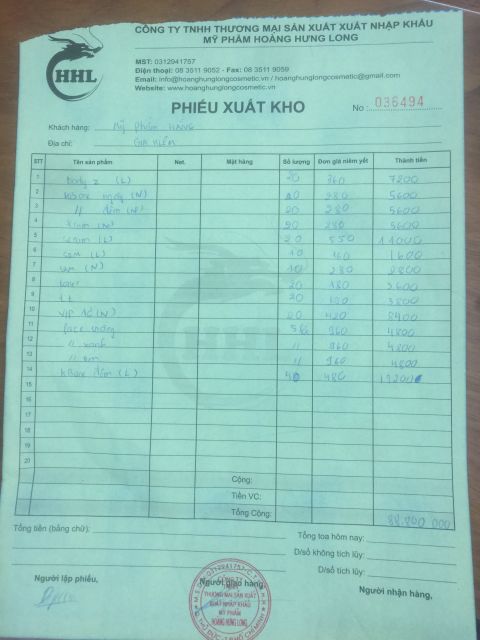 HHL
CÔNG TY TNHH THƯƠNG MẠI SẢN XUẤT XUẤT NHẬP KHẨU
MỸ PHẨM HOÀNG HƯNG LONG
MST: 0312941757
Điện thoại: 08 3511 9052 - Fax: 08 3511 9059
Email: info@hoanghunglongcosmetic.vn / hoanghunglongcosmetic@gmail.com
Website: www.hoanghunglongcosmetic.vn
PHIẾU XUẤT KHO
No : 036494
Khách hàng: Mỹ Phẩm HẰNG
Địa chỉ: GIA KIỆM
STT Tên sản phẩm Net. Mặt hàng Số lượng Đơn giá niêm yết Thành tiền
1 body 2 (L) 20 360 7200
2 kBore ngày (N) 20 280 5600
3 // đêm (N) 20 280 5600
4 (N) 20 280 5600
5 serum (L) 20 550 11000
6 (L) 10 160 1600
7 (N) 10 280 2800
8 20 180 3600
9 20 190 3800
10 VIP (N) 20 420 8400
11 face 960 4800
12 // xanh // 960 4800
13 // // 960 4800
14 kBore đêm (L) 40 480 19200
15
16
17
18
19
20
Cộng:
Tiền VC:
Tổng Cộng: 88.800 000
Tổng tiền (bằng chữ):
Tổng toa hôm nay:
D/số không tích lũy:
D/số tích lũy:
Người lập phiếu,
Người giao hàng,
Người nhận hàng,
M.S.T: 0312941757-C.T.T.N.H.H
CÔNG TY
TNHH
THƯƠNG MẠI SẢN XUẤT
XUẤT NHẬP KHẨU
MỸ PHẨM
HOÀNG HƯNG LONG
Q. THỦ ĐỨC - T.P HỒ CHÍ MINH